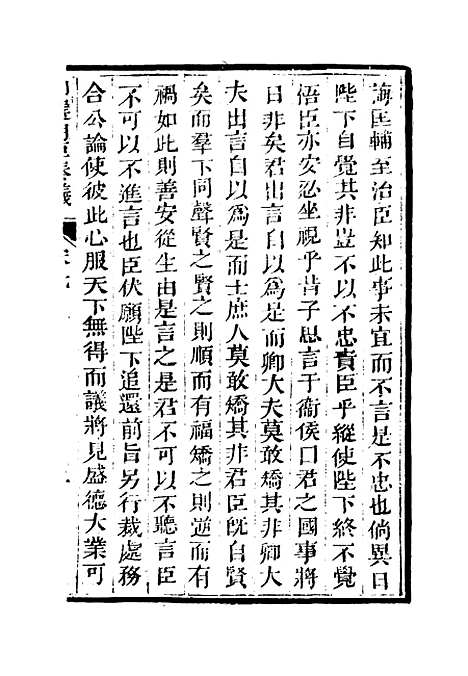 誨匡輔至治臣知此事未宜而不言是不忠也倘異日
陛下自覺其非豈不以不忠責臣乎縱使陛下終不覺
悟臣亦安忍坐視乎昔子思言于衞侯曰君之國事將
日非矣君出言自以爲是而卿大夫莫敢矯其非卿大
夫出言自以爲是而士庶人莫敢矯其非君臣旣自賢
矣而羣下同聲賢之賢之則順而有福矯之則逆而有
禍如此則善安從生由是言之是君不可以不聽言臣
不可以不進言也臣伏願陛下追還前旨另行裁處務
合公論使彼此心服天下無得而議將見盛德大業可